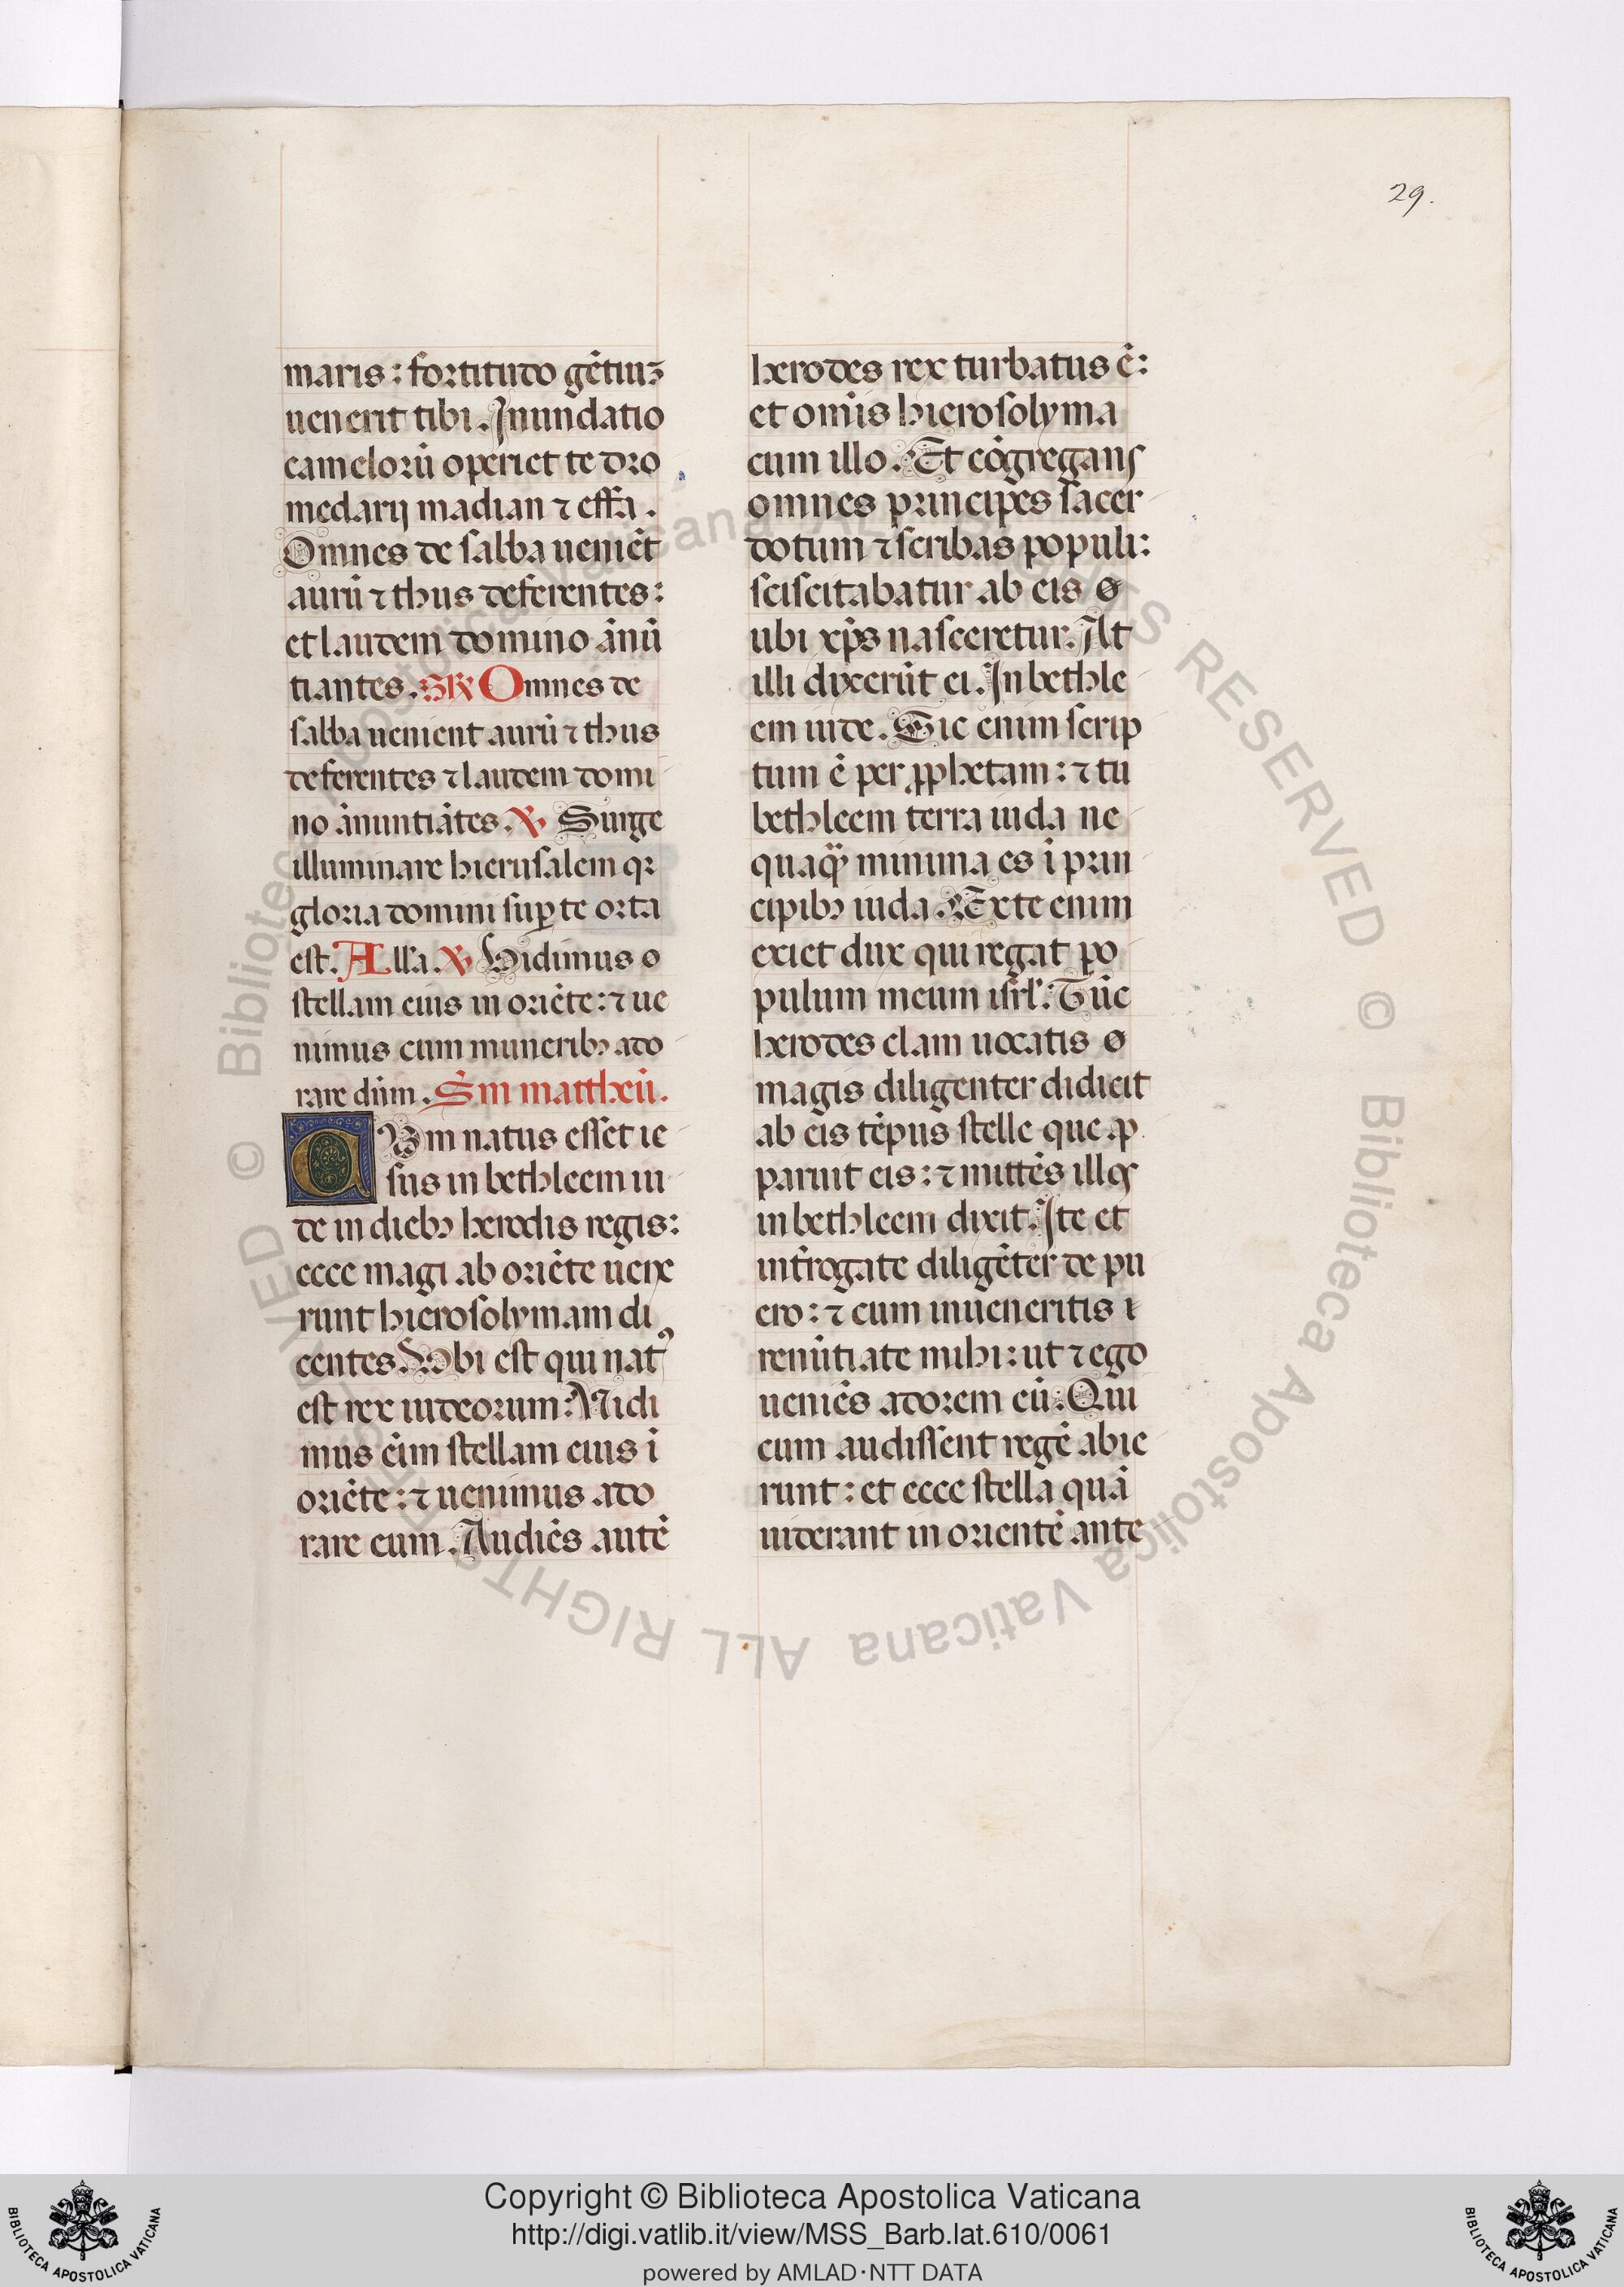 29.
maris: fortitudo gētiuꝫ
uenerit tibi. Inundatio
camelorū operiet te dro
medarij madian ⁊ effa.
Omnes de sabba ueniēt
aurū ⁊ thus deferentes:
et laudem domino ānū
tiantes. GR Omnes de
sabba uenient aurū ⁊ thus
deferentes ⁊ laudem domi
no ānuntiātes. ℣ Surge
illuminare hierusalem qꝛ
gloria domini suꝑ te orta
est. Alla. ℣ Vidimus o
stellam eius in oriēte: ⁊ ue
nimus cum muneribꝫ ado
rare dn̄m. Sm mattheū.
CVm natus esset ie
sus in bethleem iu
de in diebꝫ herodis regis:
ecce magi ab oriēte uene
runt hierosolymam di
centes. Vbi est qui natꝰ
est rex iudeorum: Vidi
mus eīm stellam eius ī
oriēte: ⁊ uenimus ado
rare eum. Audiēs autē
herodes rex turbatus ē:
et omīs hierosolyma
cum illo. Et cōgregans
omnes principes sacer
dotum ⁊ scribas populi:
sciscitabatur ab eis ø
ubi xp̄s nasceretur. At
illi dixerūt ei. In bethle
em iude. Sic enim scrip
tum ē per ꝓphetam: ⁊ tu
bethleem terra iuda ne
quaq̄ minima es ī prin
cipibꝫ iuda. Ex te enim
exiet dux qui regat po
pulum meum isrl̄. Tūc
herodes clam uocatis ø
magis diligenter didicit
ab eis tēpus stelle que ap
paruit eis: ⁊ mittēs illos
in bethleem dixit. Ite et
inťrogate diligēter de pu
ero: ⁊ cum inueneritis r
renūtiate mihi: ut ⁊ ego
ueniēs adorem eū. Qui
cum audissent regē abie
runt: et ecce stella quā
uiderant in orientē ante
© Biblioteca Apostolica Vaticana ALL RIGHTS RESERVED © Biblioteca Apostolica Vaticana ALL RIGHTS RESERVED
Copyright © Biblioteca Apostolica Vaticana
http://digi.vatlib.it/view/MSS_Barb.lat.610/0061
powered by AMLAD·NTT DATA
BIBLIOTECA APOSTOLICA VATICANA
BIBLIOTECA APOSTOLICA VATICANA